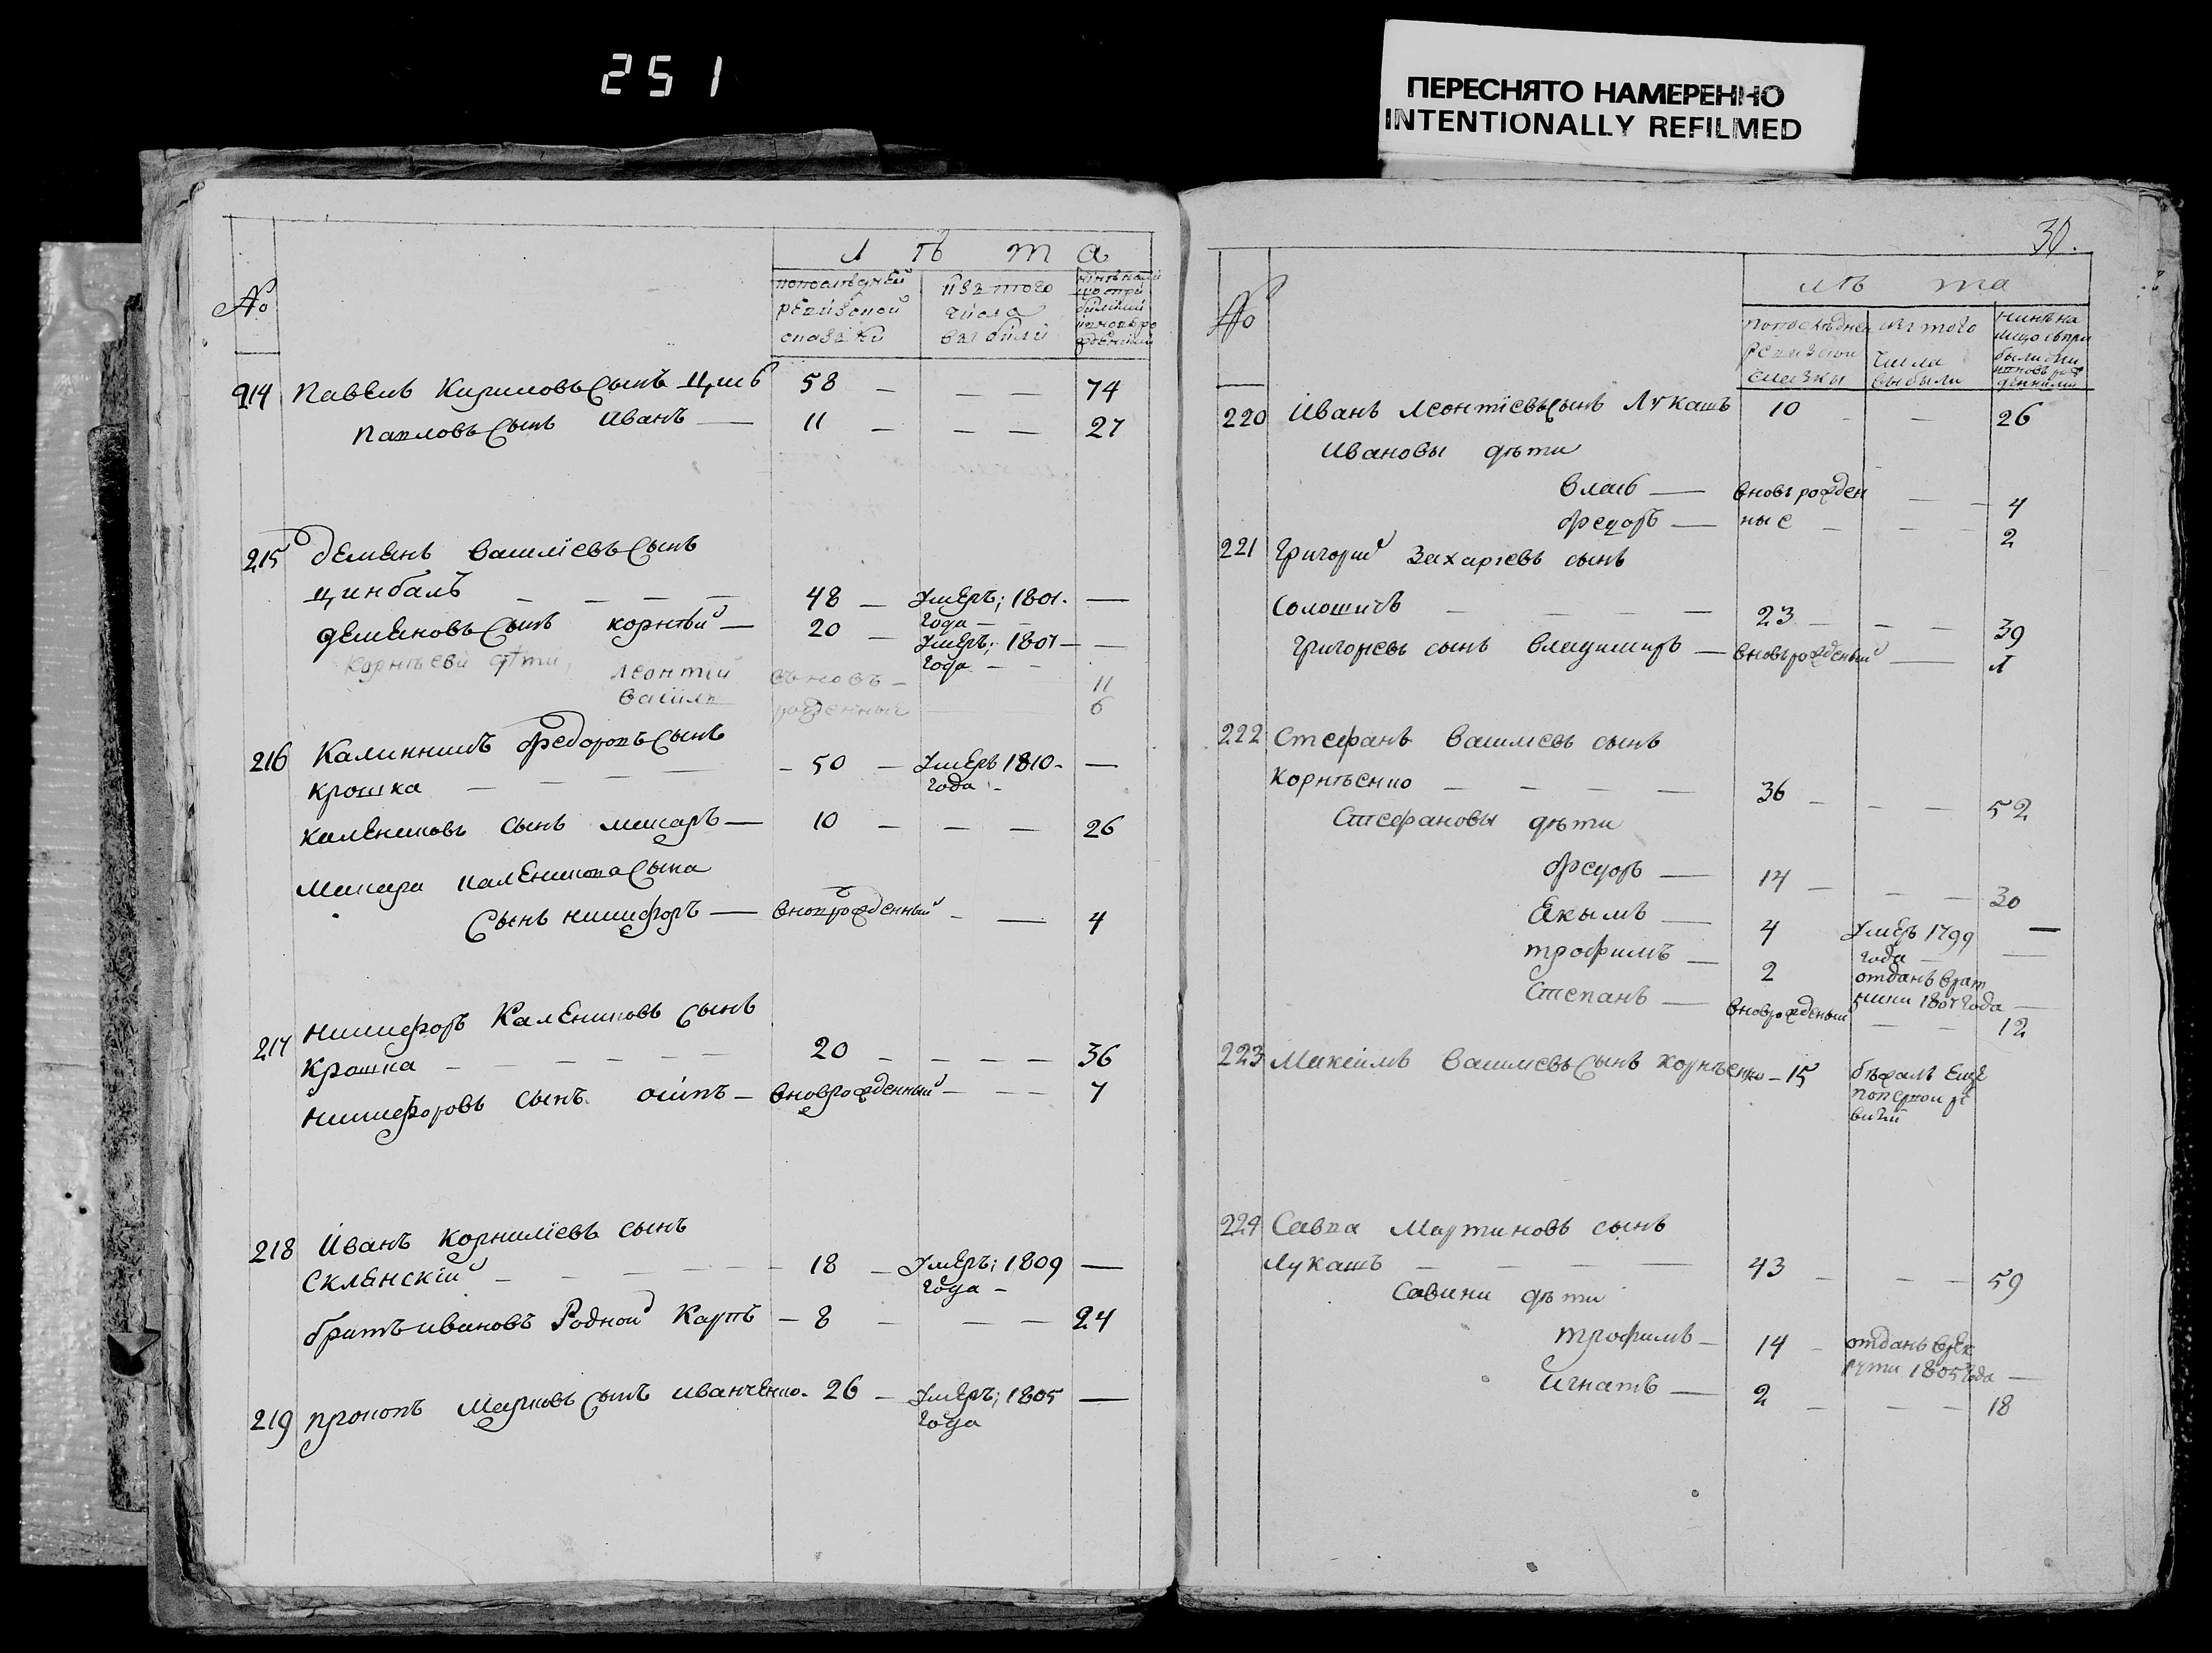 251
ПЕРЕСНЯТО НАМЕРЕННО
INTENTIONALLY REFILMED
№
Лѣта
попослѣдней ревизской сказки
изъ того числа выбыли
214 Павелъ Кириловъ сынъ 58 — — — 74
Павловъ сынъ Иванъ — 11 — — — 27
215 Деменъ Василїевъ сынъ
Цинбалъ — — — — 48 — Умеръ; 1801. —
года —
Деменовъ сынъ Корнѣй — 20 — Умеръ; 1807 — —
года — —
Корнѣеви дѣти,
Леонтїй вьновъ — 11
Василь рожденные 6
216 Калинникъ Федоровъ сынъ
Крошка — — — — 50 — Умеръ 1810 — —
года —
Калениковъ сынъ Макаръ — 10 — — — 26
Макара Каленикова сына
Сынъ Никифоръ — вноврожденный — — 4
217 Никифоръ Калениковъ сынъ
Крошка — — — — — 20 — — — — 36
Никифоровъ сынъ Осипъ — вноврожденный — — — 7
218 Иванъ Корнилїевъ сынъ
Скленскїй — — — — — 18 — Умеръ; 1809 —
года —
братъ Ивановъ Родной Карпъ — 8 — — — 24
219 Прокопъ Марковъ сынъ Иванченко. 26 — Умеръ; 1805 —
года
30.
№
Лѣта
попослѣдней ревизской сказки
изъ того числа выбыли
220 Иванъ Леонтїевъ сынъ Лукашъ 10 — — 26
Ивановы дѣти
Власъ — вновь рожден — — 4
Федоръ — ные — — — 2
221 Григорий Захарїевъ сынъ
— — — — 23 — — — 39
Григорїевъ сынъ Владимиръ — вновьрожденый —
222 Стефанъ Василїевъ сынъ
Корнѣенко — — — — 36 — — — 52
Стефановы дѣти
Федоръ — 14 — — — 30
Екымъ — 4 Умеръ 1799 —
года —
Трофимъ — 2 отданъ врат
ники 1807 года —
Степанъ — вноврожденый — — 12
223 Максимъ Василїевъ сынъ Корнѣенко — 15 бѣжалъ еще
поперпои ре
визїи
224 Савва Мартиновъ сынъ
Лукашъ — — — — 43 — — — 59
Савини дѣти
Трофимъ — 14 — отданъ врек
рути 1805 года —
Игнатъ — 2 — — — 18